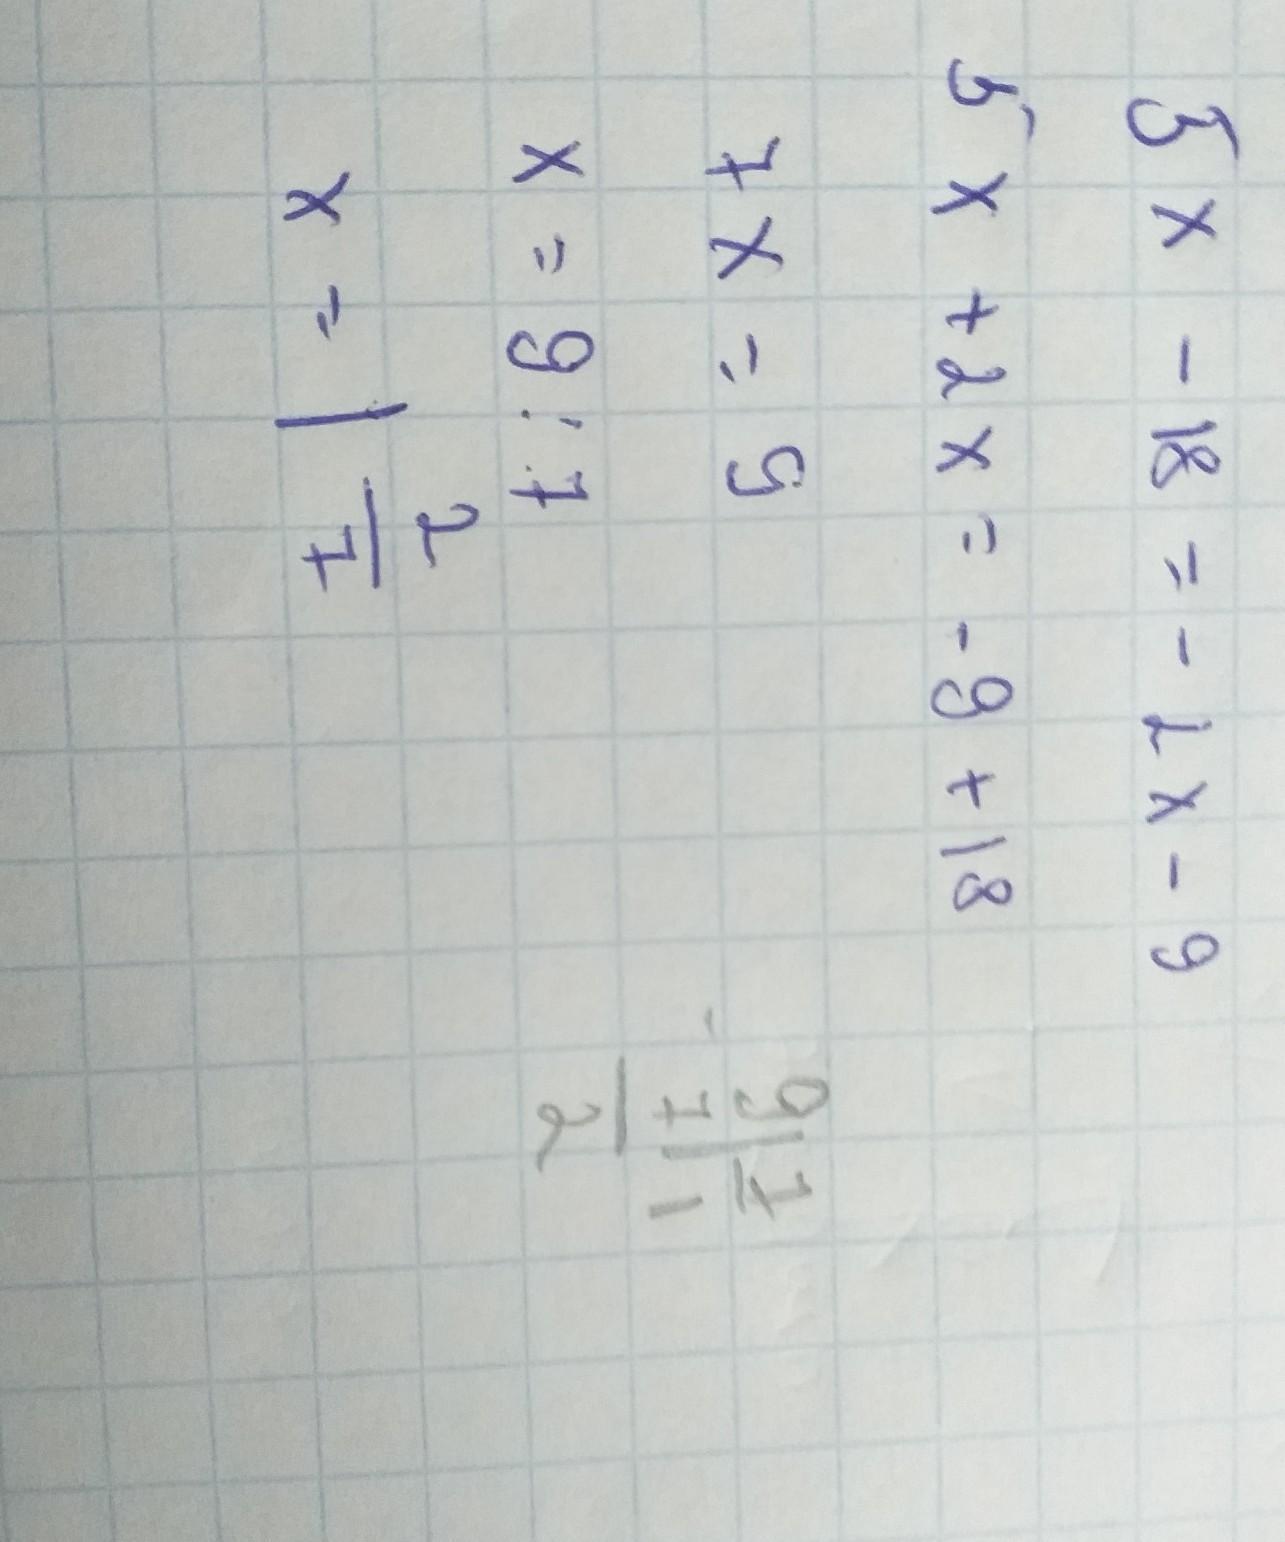 5x - 18 = - 2x - 9
5x + 2x = - 9 + 18
7x = 9
x = 9 : 7
x = 1 2/7
- 9 | 7
7 | 1
2